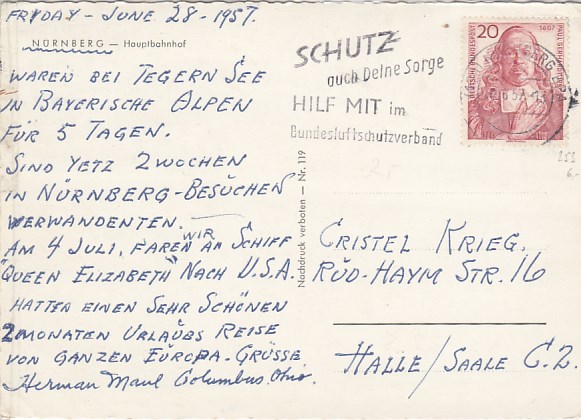 FRYDAY - JUNE 28 - 1957.
NÜRNBERG — Hauptbahnhof
WAREN BEI TEGERN SEE
IN BAYERISCHE ALPEN
FÜR 5 TAGEN.
SIND YETZ 2 WOCHEN
IN NÜRNBERG - BESUCHEN
VERWANDENTEN.
AM 4 JULI, FAREN WIR AN SCHIFF
"QUEEN ELIZABETH" NACH U.S.A.
HATTEN EINEN SEHR SCHÖNEN
2 MONATEN URLAUBS REISE
VON GANZEN EUROPA - GRÜSSE
Herman Maul Columbus. Ohio.
Nachdruck verboten — Nr. 119
SCHUTZ
auch Deine Sorge
HILF MIT im
Bundesluftschutzverband
DEUTSCHE BUNDESPOST
20
1607
CRISTEL KRIEG.
RÜD-HAYM STR. 16
HALLE/SAALE C.2.